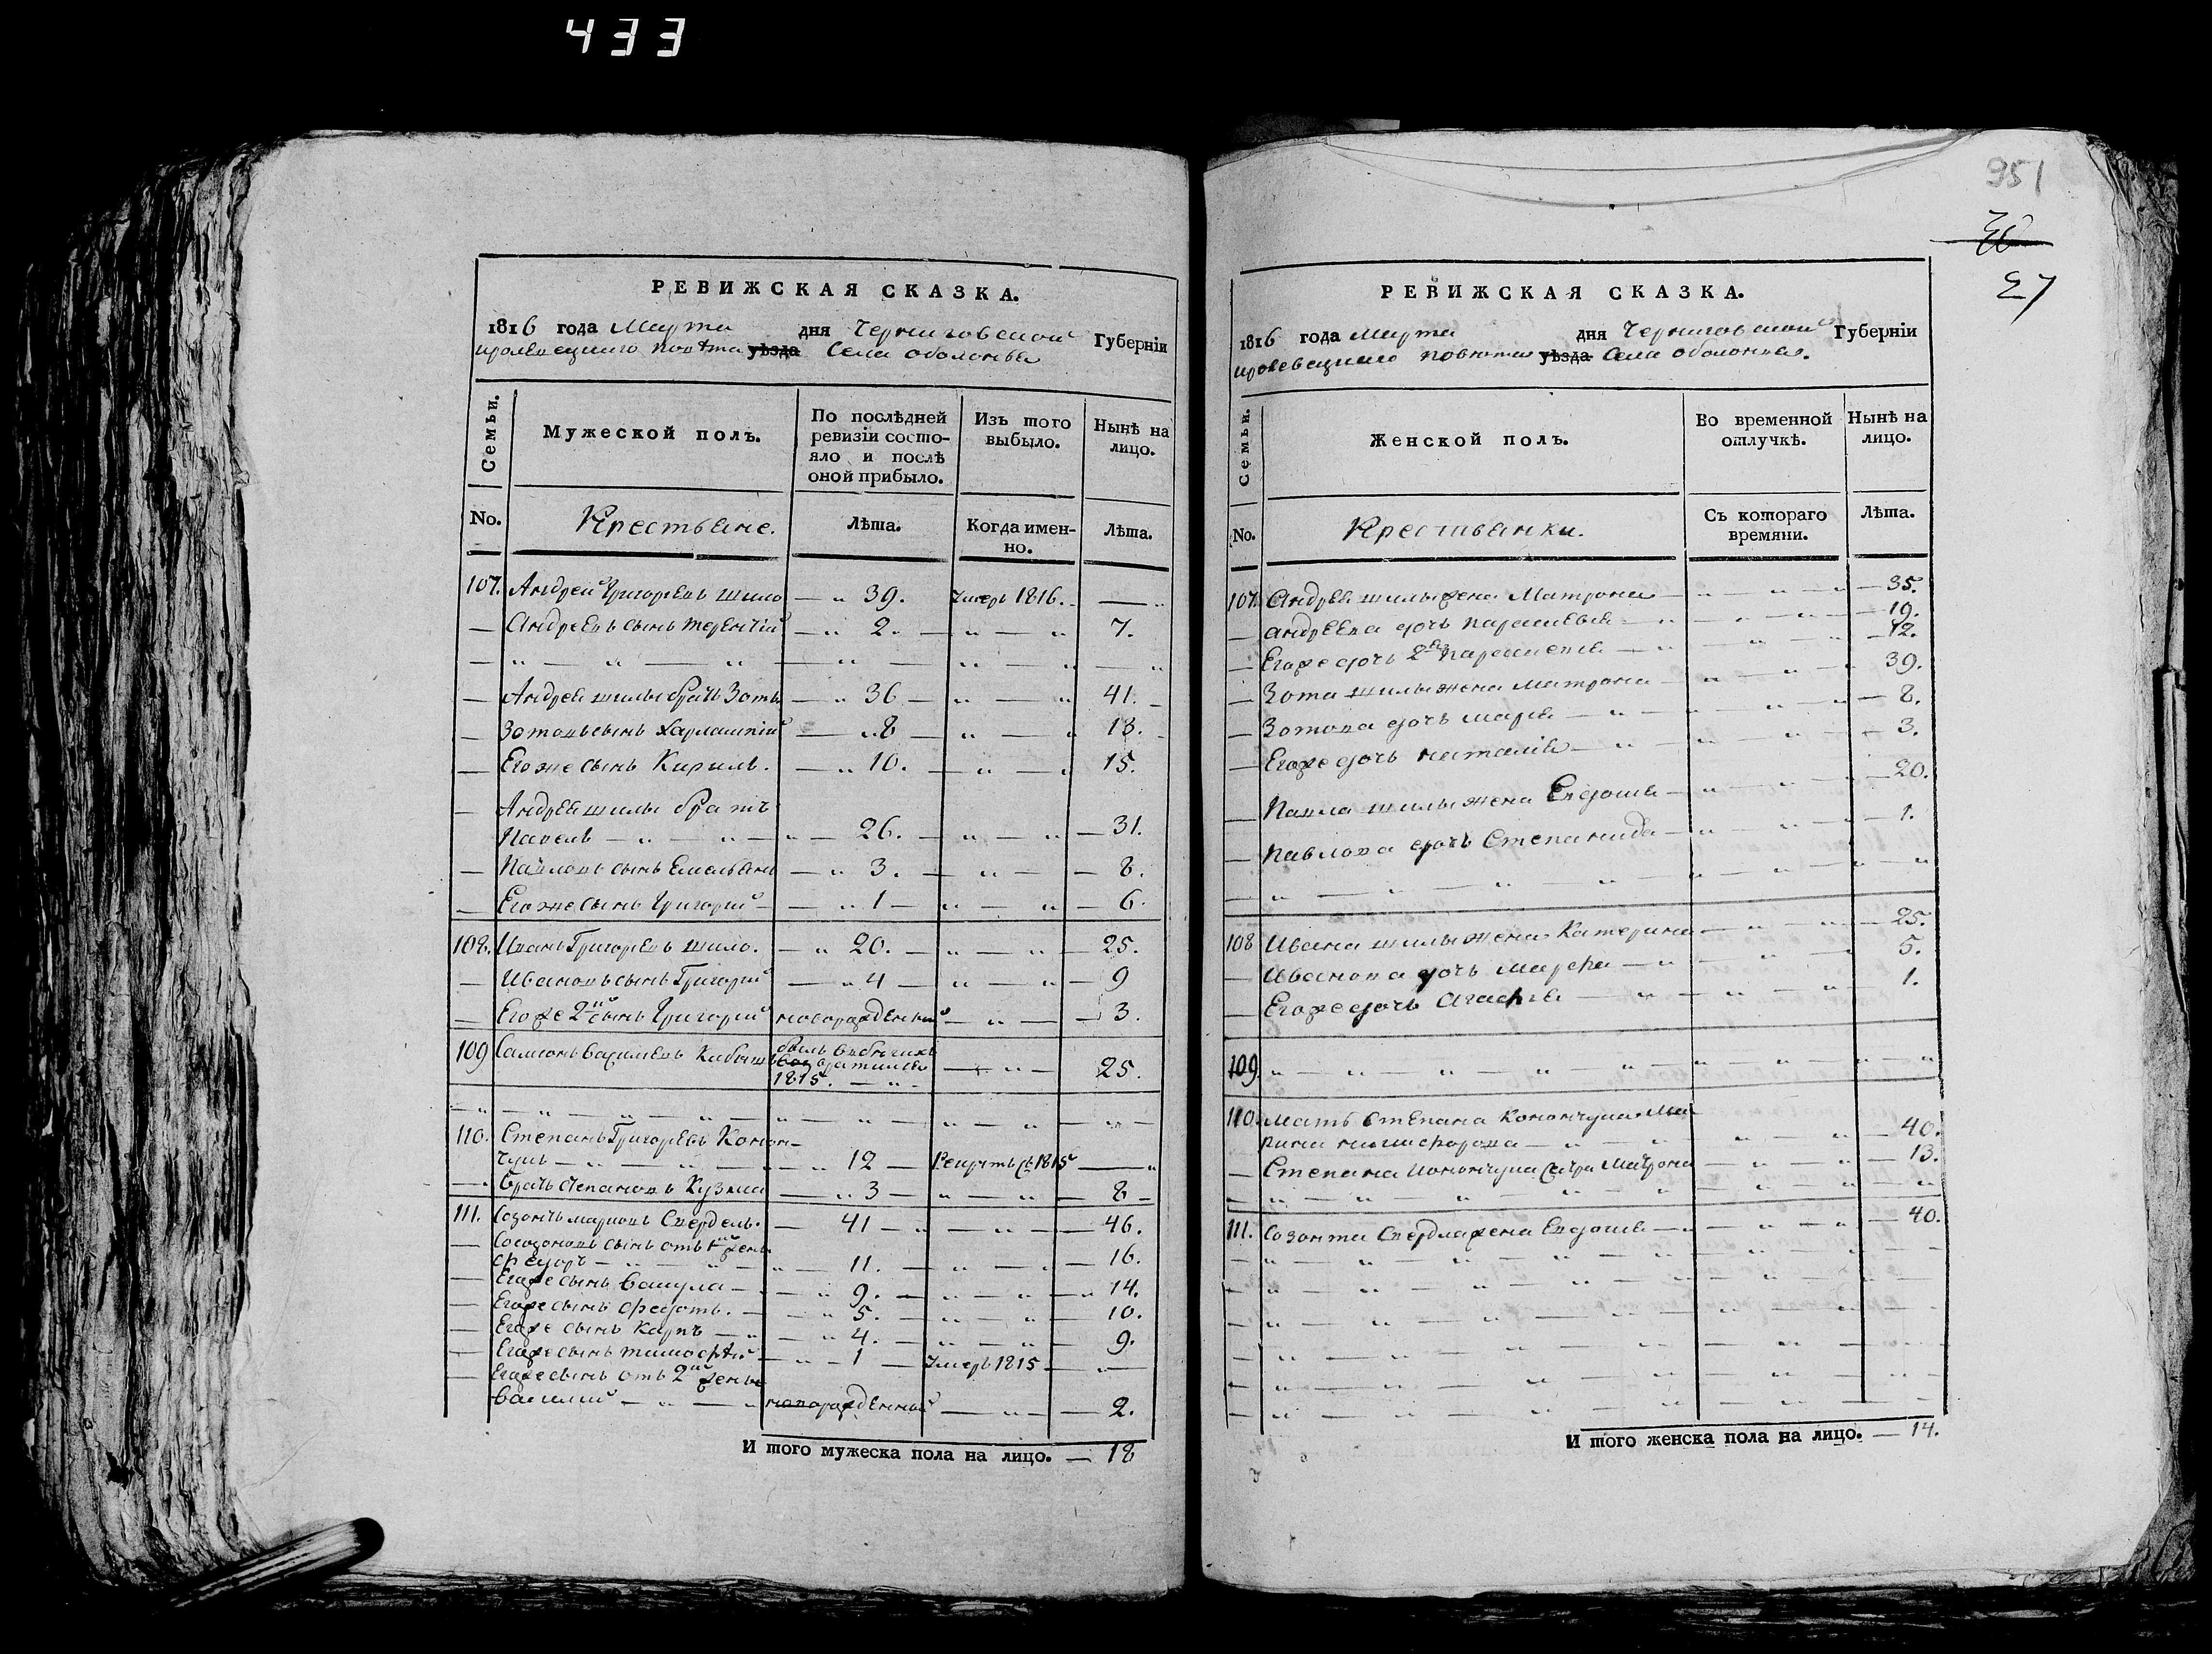 433
РЕВИЖСКАЯ СКАЗКА.
1816 года Марта дня Черниговской Губерніи
кролевецкого повѣта уѣзда Села оболонья
Семьи.
Мужеской полъ.
По послѣдней ревизіи состояло и послѣ оной прибыло.
Изъ того выбыло.
Нынѣ на лицо.
No.
Крестьяне.
Лѣта.
Когда именно.
Лѣта.
107. Андрей Григорьевъ шило — „ 39. умеръ 1816. — „
— Андреевъ сынъ терентій — „ 2. — „ — „ 7.
— „ — „ — „ — „ „ — „ — „
— Андрея шилы братъ Зотъ — „ 36 — „ — „ 41.
— Зотовъ сынъ Харлампій — „ 8 — „ — „ 13.
— Его же сынъ Кирилъ. — „ 10. — „ — „ 15.
— Андрея шилы братъ
Павелъ — „ — „ — „ — 26. — „ — „ — 31.
— Павловъ сынъ Емельянъ — „ 3. — „ — — 8.
— Его же сынъ Григорій — — „ 1 — „ — „ — 6.
108. Иванъ Григорьевъ шило. — „ 20. — „ — „ — 25.
— Ивановъ сынъ Григорій — „ 4 — „ — „ — 9
— Его же 2й сынъ Григорій новорожденный — „ — — 3.
109 Самсонъ Василіевъ былъ в бѣгахъ
возвратился — „ — 25.
1815. — „ —
— „ — „ — „ — „ — „ — „ — „ — „ — „ —
110. Степанъ Григорьевъ Конон-
чукъ — „ — „ — „ 12 — Рекрутъ съ 1815 — „
— Братъ степановъ Кузма — „ 3 — „ — „ — 8 —
111. Созонтъ марковъ Свердель. — 41 — „ — „ — 46.
— Созоновъ сынъ отъ 1й жены
федоръ — „ — „ — „ — 11. — „ — „ — 16.
— Его же сынъ Вакула — — „ 9. — „ — „ — „ 14.
— Его же сынъ федотъ. — — „ 5. — „ — „ 10.
— Его же сынъ Карпъ — „ — „ 4. — „ — „ 9.
— Его же сынъ тимофѣй — „ — 1 — умеръ 1815 — „ —
— Его же сынъ отъ 2й жены
Василій — „ — „ новорожденной — „ — 2.
И того мужеска пола на лицо. — 18
951
27
РЕВИЖСКАЯ СКАЗКА.
1816 года Марта дня Черниговской Губерніи
кролевецкого повѣта уѣзда Села оболонья.
Семьи.
Женской полъ.
Во временной отлучкѣ.
Нынѣ на лицо.
No.
Крестьянки.
Съ котораго времяни.
Лѣта.
107. Андрея шилы жена Матрона — „ — „ — 35.
— андреева дочь параскевья — „ — „ — 19.
— Его же дочь 2я параскевья — „ — „ — 12.
— Зота шилы жена матрона — „ — „ 39.
— Зотова дочь марья — „ — „ — „ — 8.
— Его же дочь наталія — „ — „ — 3.
— Павла шилы жена Евдокія — „ — „ — 20.
— Павлова дочь Степанида — „ — „ — 1.
— „ — „ — „ — „ — „ — „
108 Ивана шилы жена Катерина — „ — „ — 25.
— Иванова дочь марфа — „ — „ — 5.
— Его же дочь Агафія — „ — „ — „ 1.
109. „ — „ — „ — „ — „ — „ — „
110. Мать Степана Конончука Ма
рина никифорова — „ — „ — „ — 40.
— Степана Конончука сестра Матрона — „ — 13.
— „ — „ — „ — „ — „ — „ — „
111. Созонта Свердла жена Евдокія — „ — „ — 40.
— „ — „ — „ — „ — „ — „ — „
— „ — „ — „ — „ — „ — „ — „
— „ — „ — „ — „ — „ — „ — „
— „ — „ — „ — „ — „ — „ — „
— „ — „ — „ — „ — „ — „ — „
— „ — „ — „ — „ — „ — „ — „
И того женска пола на лицо. — 14.